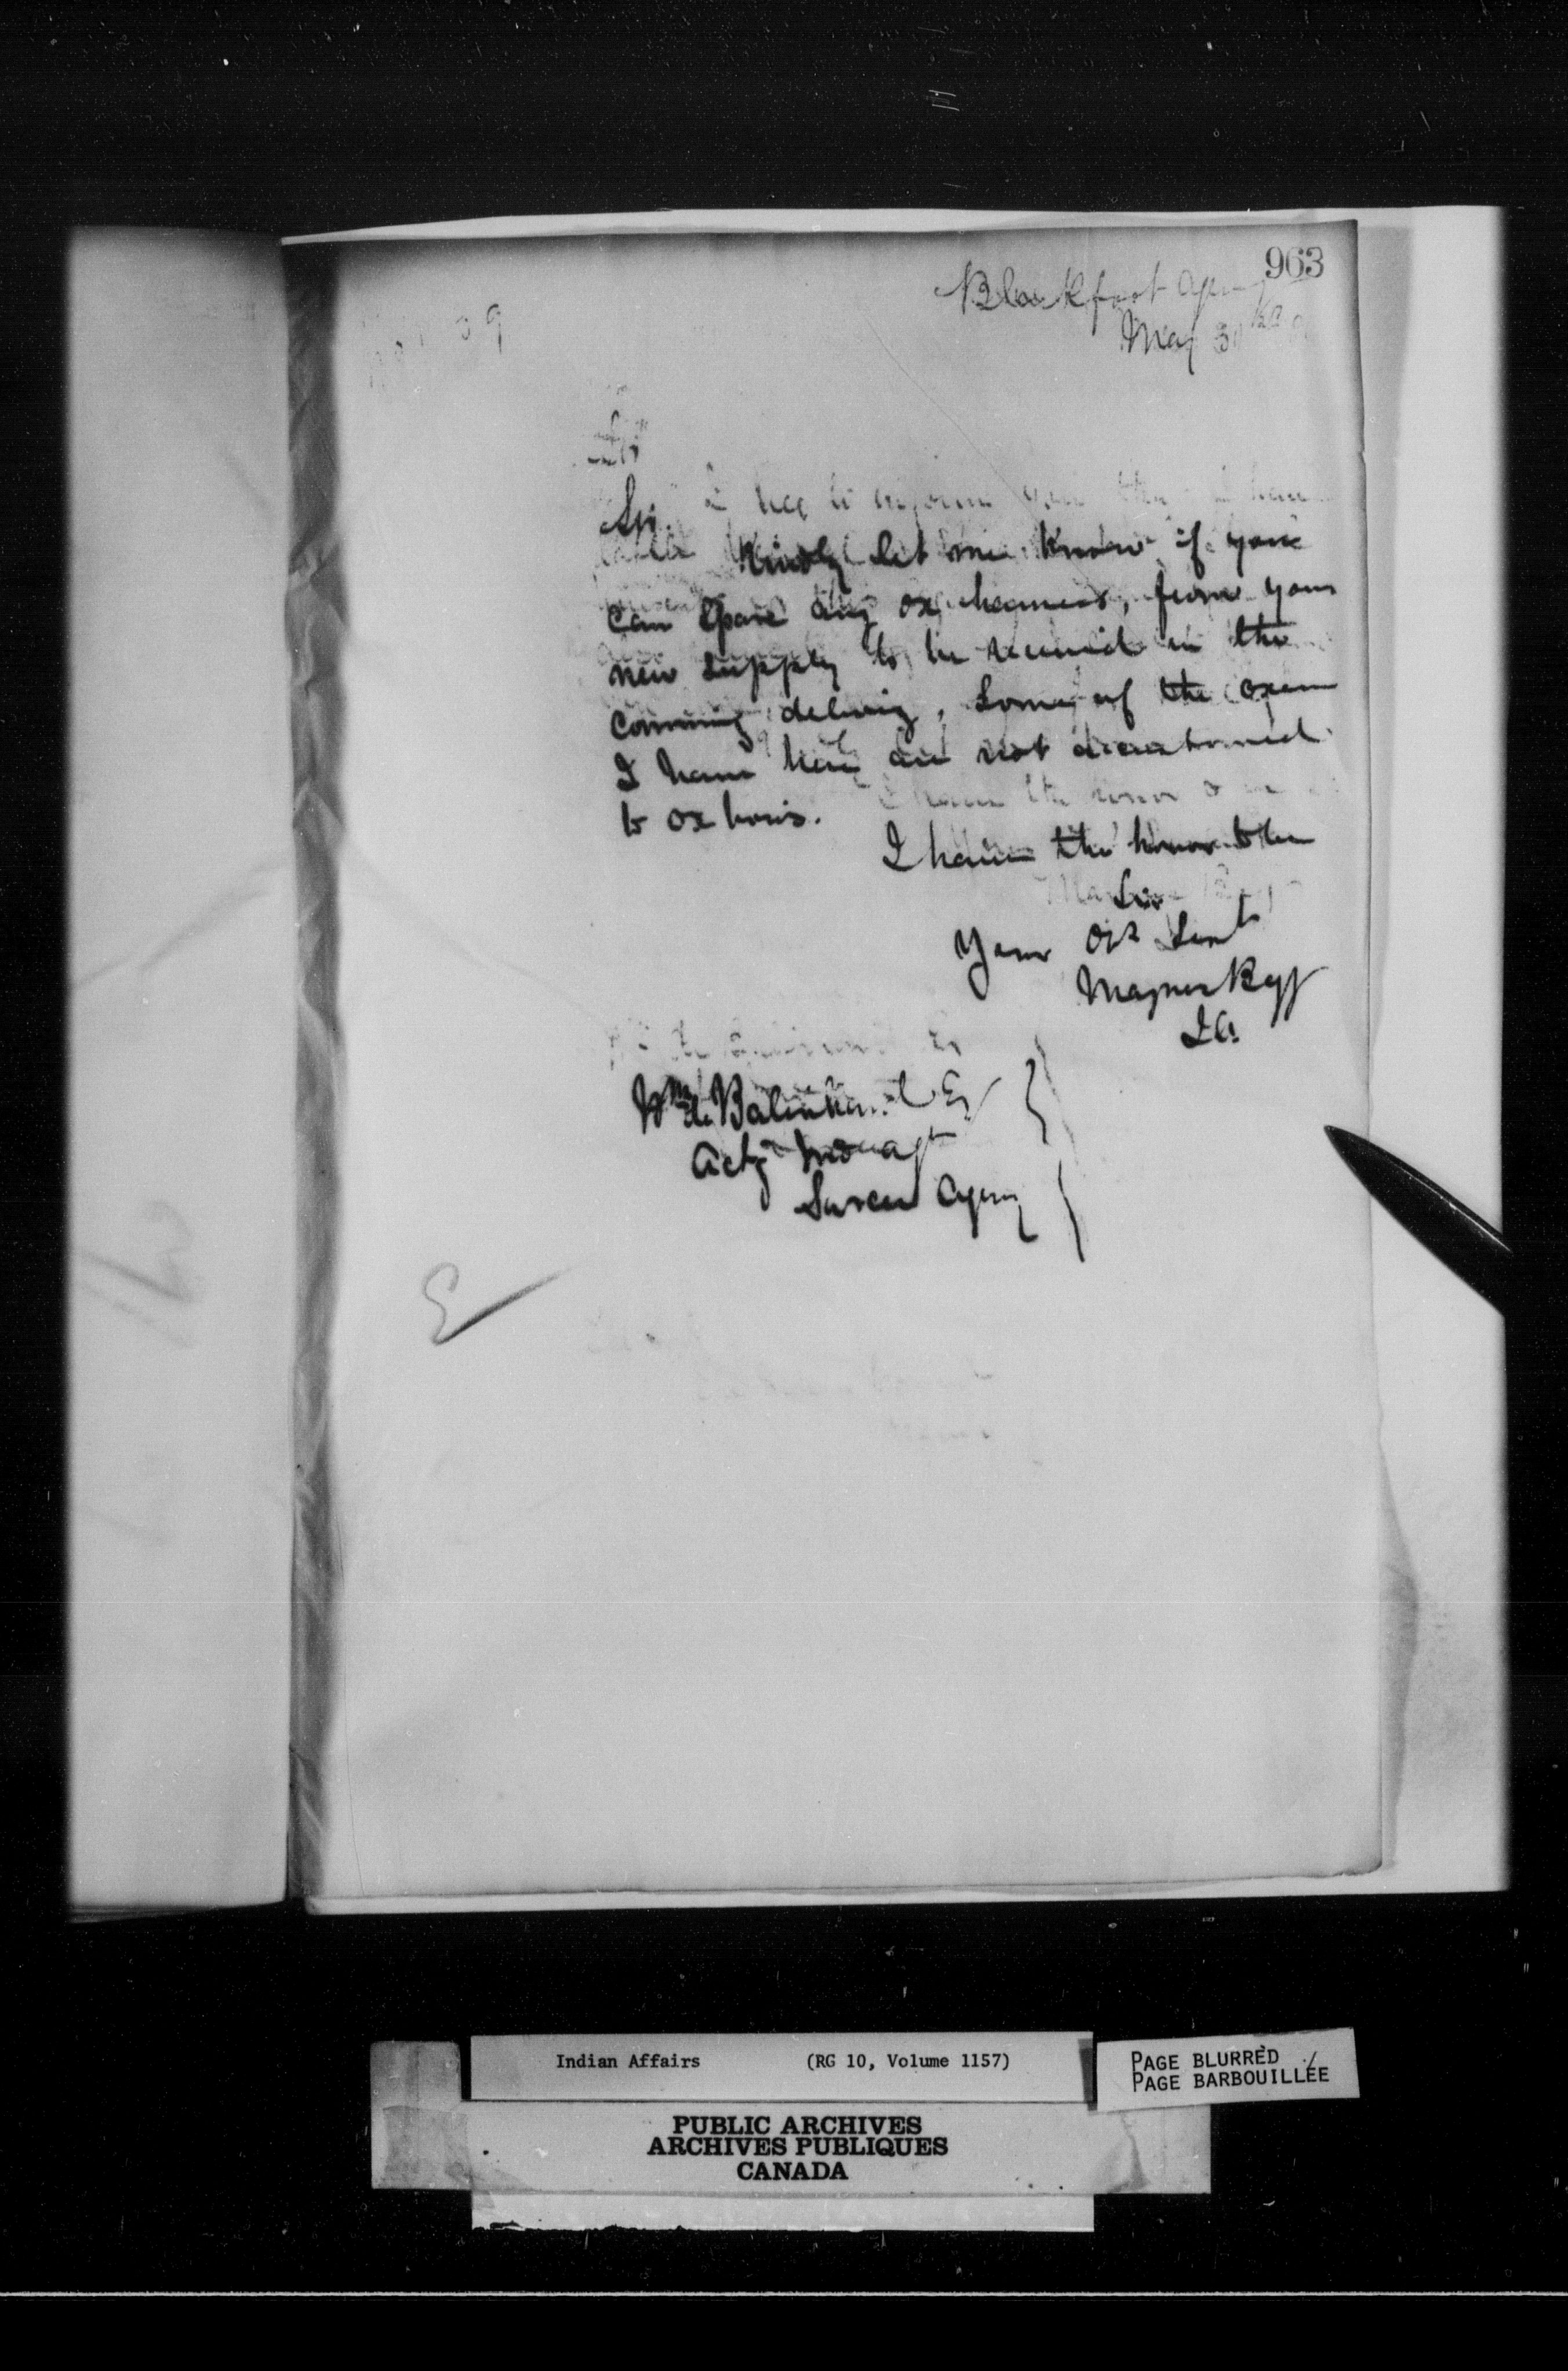 963
Blackfoot Agency
May 30
Sir
Sir. I beg to inform you that I have
Kindly let me know if you
can spare any ox harness, from your
new supply to be received in the
coming delivery, some of the oxen
I have here are not accustomed
to ox bows.
I have the honor to be
I have the honor to be
Sir
Your Obt Servt
Magnus Begg
I.A.
Wm
Actg Ind Agt
Sarcee Agency
Indian Affairs (RG 10, Volume 1157)
PAGE BLURRED
PAGE BARBOUILLÉE
PUBLIC ARCHIVES
ARCHIVES PUBLIQUES
CANADA